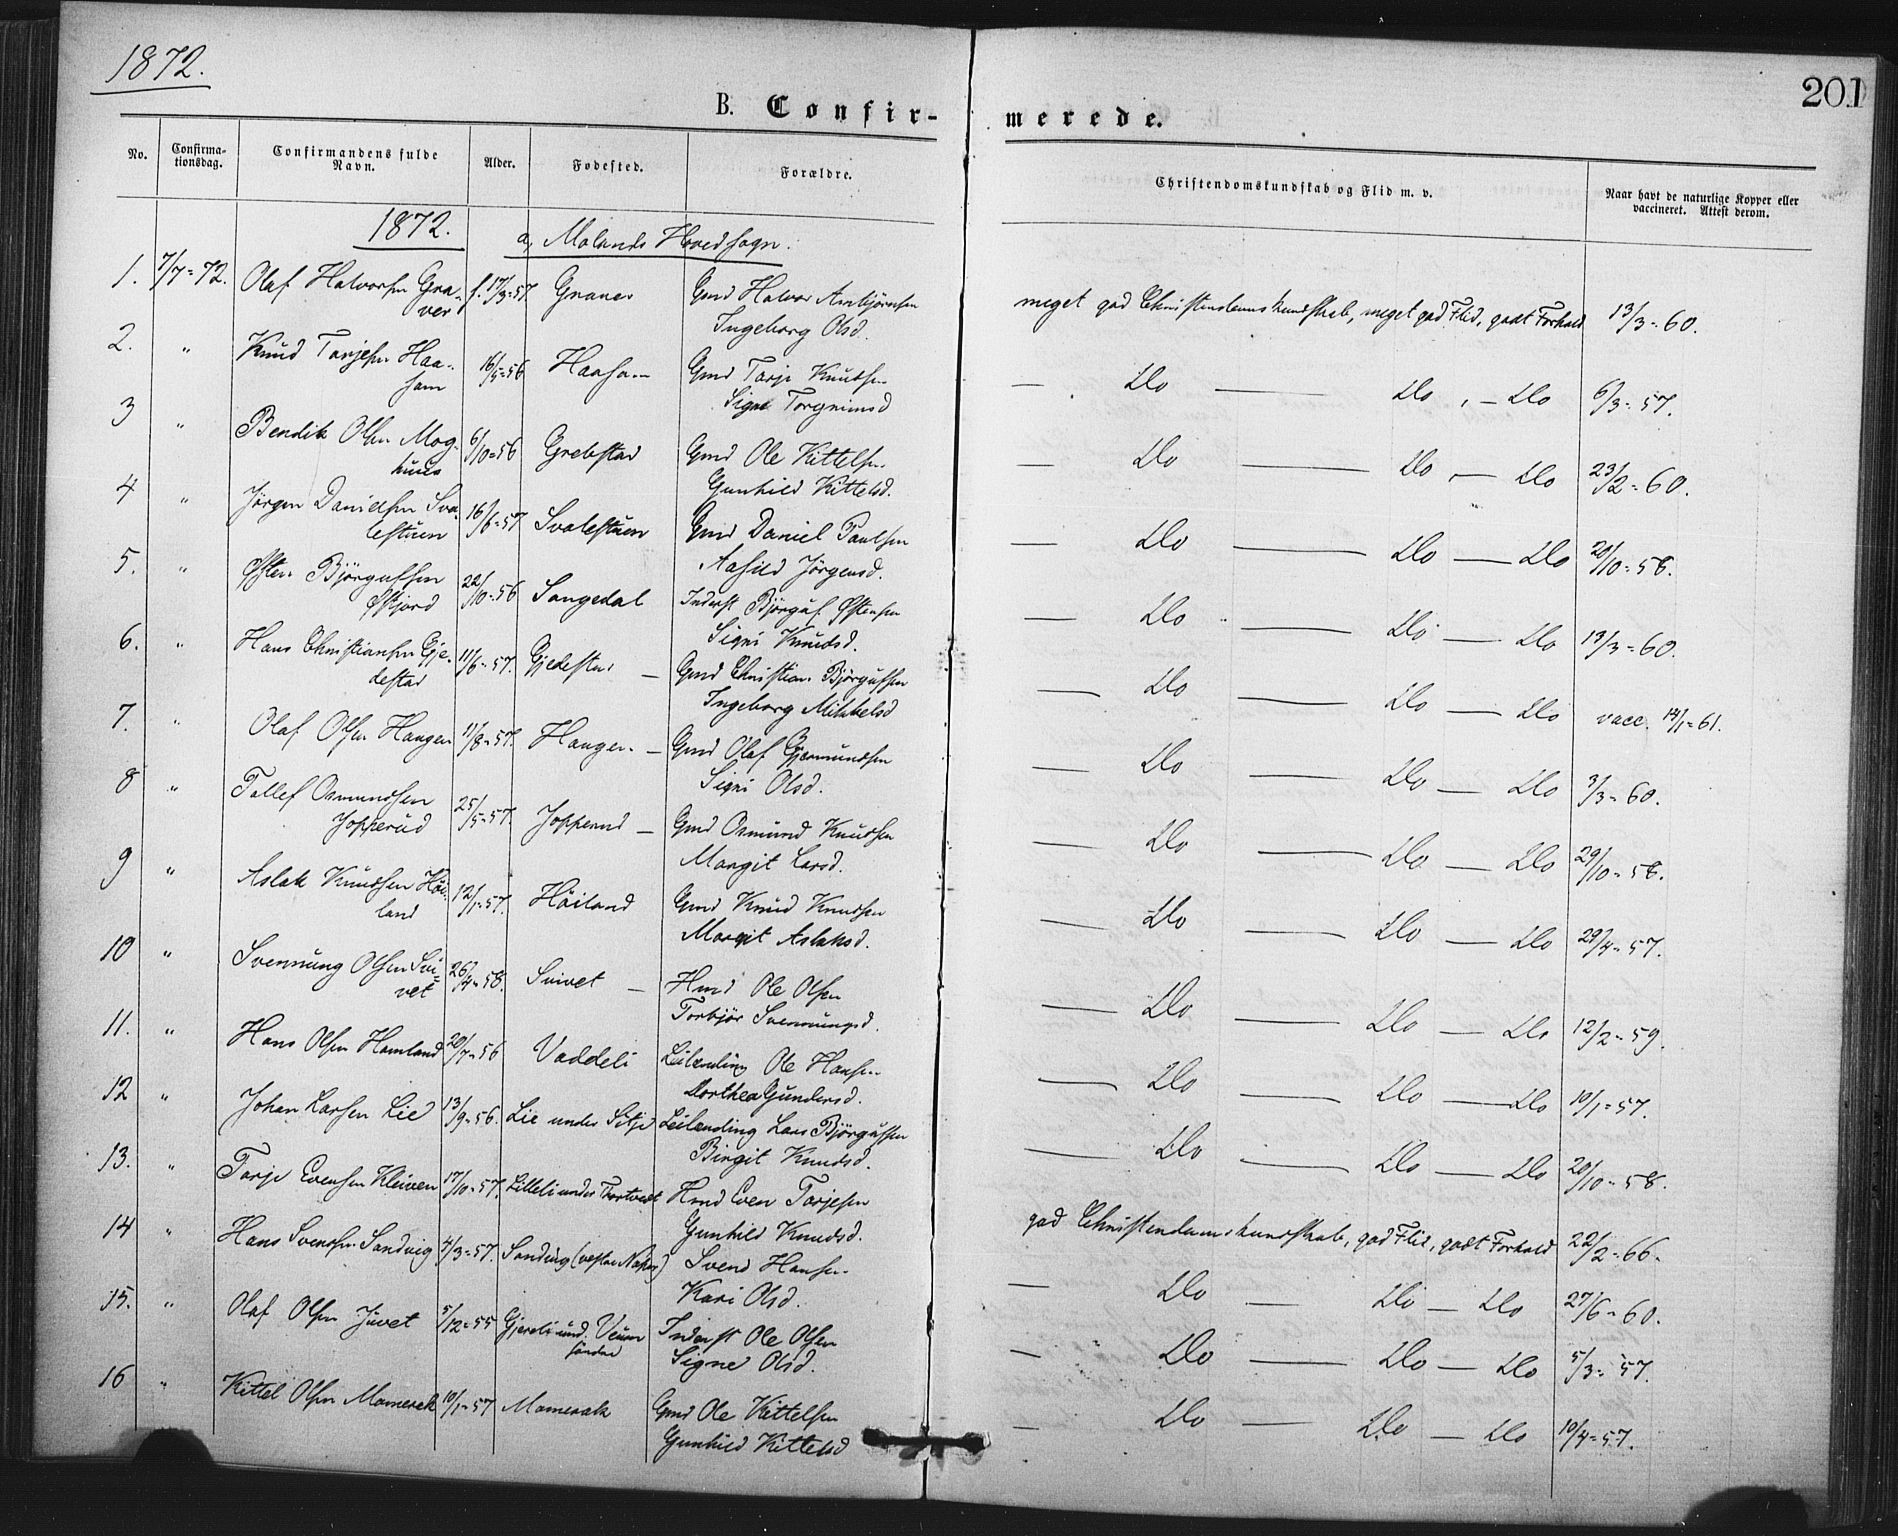 1872.
201
B. Confirmerede.
No. Confirmationsdag. Confirmandens fulde Navn. Alder. Fødested. Forældre. Christendomskundskab og Flid m. v. Naar havt de naturlige Kopper eller vaccineret. Attest derom.
1872. a, Molands Hovedsogn.
1. 7/7=72. Olaf Halvorsen Gra- f. 17/3=57 Graver Gmd Halvor Ambjörnsen meget god Christendomskundskab, meget god Flid, godt Forhold 13/3=60.
ver Ingeborg Olsd.
2. " Knud Tarjesen Haa- 16/5=56 Haasom Gmd Tarje Knudsen — Do — Do, — Do 6/3=57.
som Signe Torgrimsd
3 " Bendik Olsen Mog- 6/10=56 Grebstad Gmd Ole Kittelsen — Do — Do — Do 23/2=60.
huus Gunhild Kittelsd.
4 " Jörgen Danielsen Sva- 16/6=57 Svalestuen Gmd Daniel Paulsen — Do — Do — Do 20/10=56.
lestuen Aasild Jörgensd.
5. " Østen Björgufsen 22/10=56 Songedal Inderst Björguf Østensen — Do — Do — Do 13/3=60.
Øfjord Signi Knudsd.
6. " Hans Christiansen Gje- 11/6=57. Gjedestad — Gmd Christian Björgufsen — Do — Do — Do vacc. 14/1=61.
destad Ingeborg Mikkelsd
7. " Olaf Olsen Haugen 11/8=57. Haugen — Gmd Olaf Gjermundsen — Do — Do — Do 3/3=60.
Signi Olsd.
8 " Tollef Osmundsen 25/5=57. Jopperud — Gmd Osmund Knudsen — Do — Do — Do 29/10=58.
Jopperud Margit Larsd.
9 " Aslak Knudsen Höi- 12/1=57. Höiland Gmd Knud Knudsen — Do — Do — Do 29/4=57.
land Margit Aslaksd.
10 " Svennung Olsen Svi- 26/4=58. Svivet — Hmd Ole Olsen — Do — Do — Do 12/2=59.
vet Torbjör Svennungsd.
11. " Hans Olsen Homland 20/7=56 Vaddeli Leilænding Ole Hansen — Do — Do — Do 10/1=57.
Dorthea Gundersd.
12 " Johan Larsen Lie 13/9=56. Lie under Sitje Leilænding Lars Björgufsen — Do — Do — Do 20/10=58.
Birgit Knudsd.
13. " Tarje Evensen Kleiven 17/10=57. Lilleli under Tortvedt Hmd Even Tarjesen god Christendomskundskab, god Flid, godt Forhold 22/2=66.
Gunhild Knudsd.
14 " Hans Svendsen Sandvig 4/3=57. Sandvig Svend Hansen — Do — Do — Do 27/6=60.
Kari Olsd.
15. " Olaf Olsen Juvet 5/12=55 Gjereli und. Veum Inderst Ole Olsen — Do — Do — Do 5/3=57.
söndre Signe Olsd.
16 " Kittel Olsen Momerak 10/1=57 Momerak Gmd Ole Kittelsen — Do — Do — Do 10/4=57.
Gunhild Kittelsd